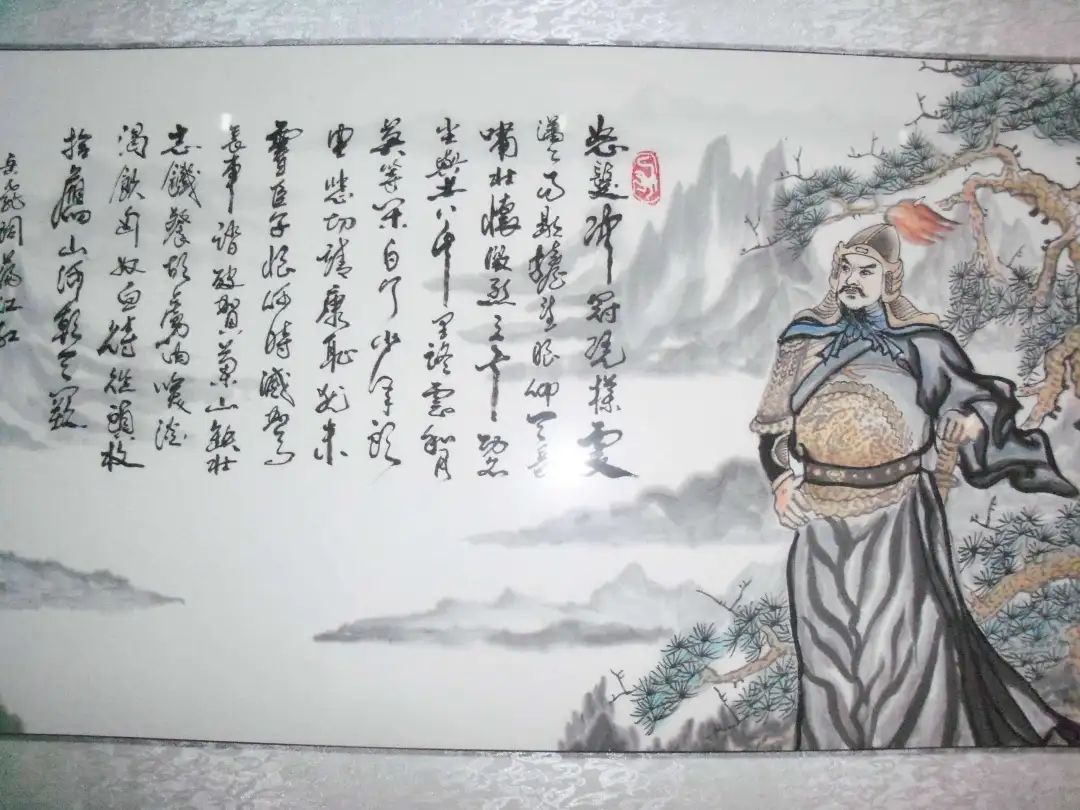 怒髮冲冠凭欄處
瀟瀟雨歇擡望眼仰天長
嘯壯懷激烈三十功名
尘與土八千里路雲和月
莫等闲白了少年头
空悲切靖康恥犹未
雪臣子恨何時滅駕
長車踏破賀蘭山缺壯
志饑餐胡虜肉笑談
渴飲匈奴血待從頭收
拾舊山河朝天闕
岳飛詞滿江紅